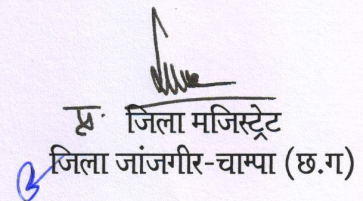 प्र. जिला मजिस्ट्रेट
जिला जांजगीर-चाम्पा (छ.ग)